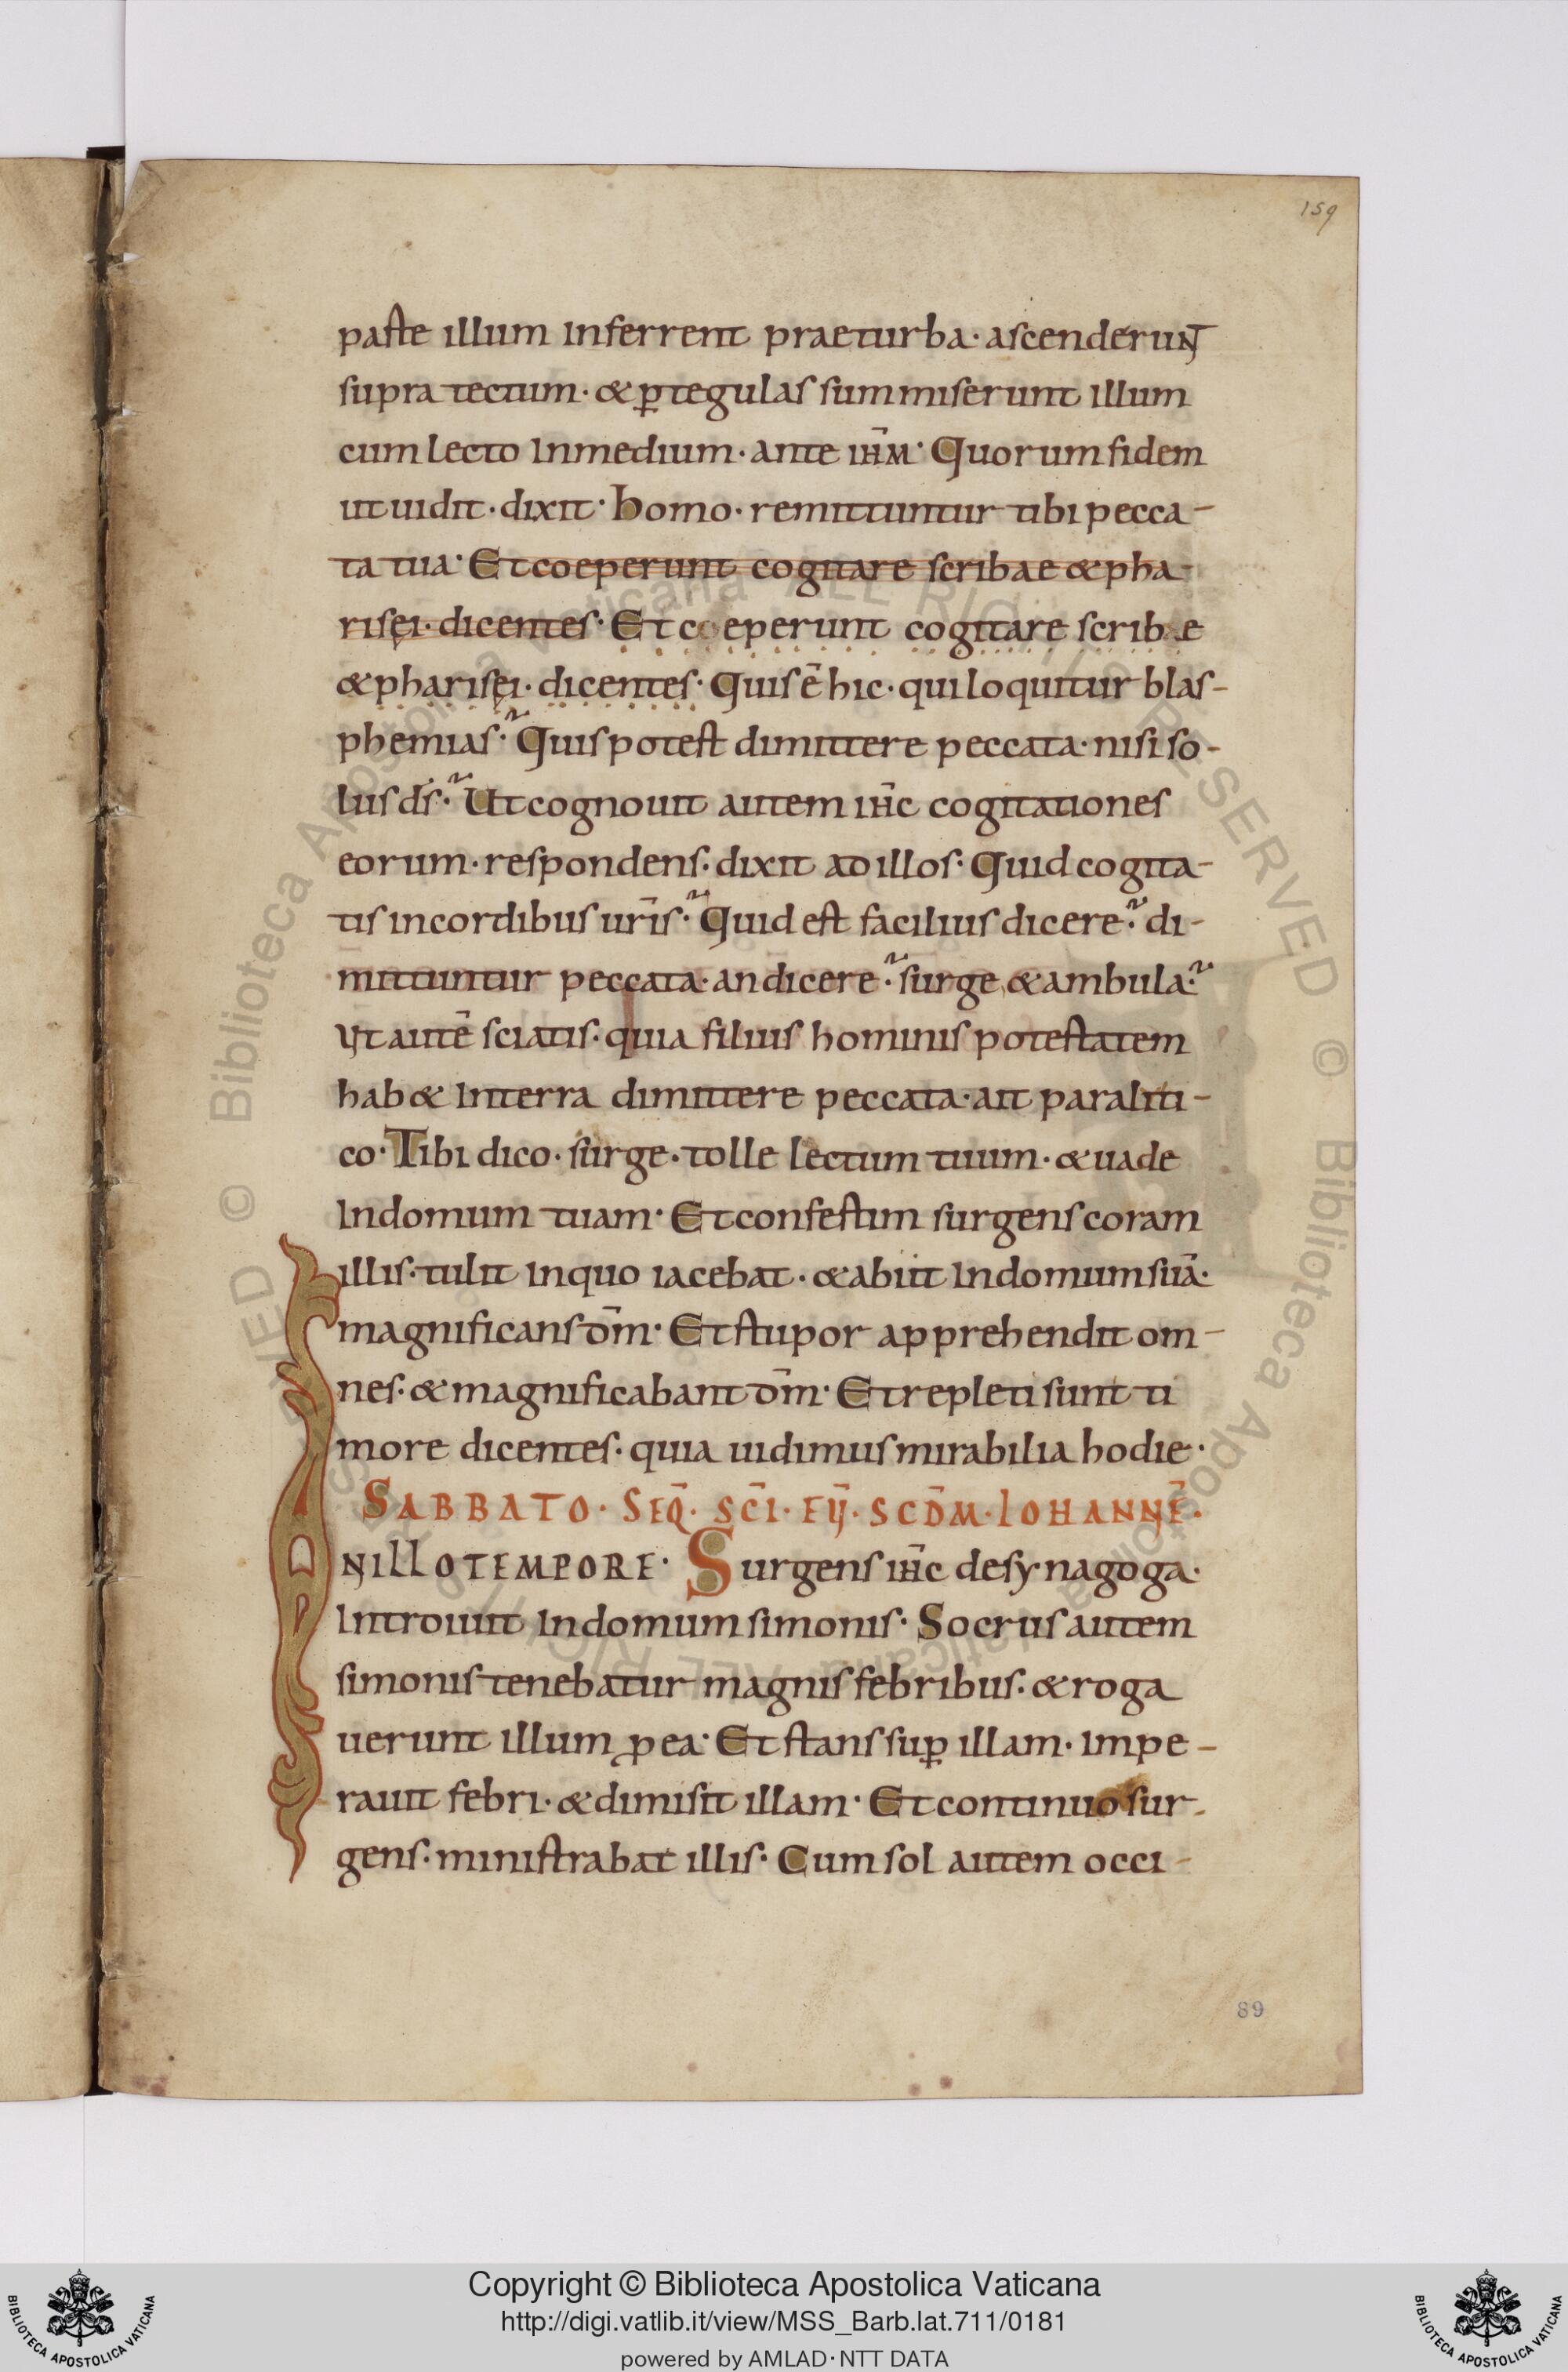 159
paste illum inferrent praeturba· ascenderunt
supra tectum· & p̲tegulas summiserunt illum
cum lecto Inmedium· ante ih̄m· Quorum fidem
ut uidit· dixit· homo· remittuntur tibi pecca-
ta tua· Et coeperunt cogitare scribae & pha-
risęi· dicentes· Et coeperunt cogitare scribae
& pharisęi· dicentes· Quis ē hic· qui loquitur blas-
phemias? Quis potest dimittere peccata· nisi so-
lus ds̄? Ut cognouit autem ih̄c cogitationes
eorum· respondens· dixit ad illos· Quid cogita-
tis in cordibus ur̄is? Quid est facilius dicere? di-
mittuntur peccata· an dicere? surge & ambula?
Ut autē sciatis· quia filius hominis potestatem
hab& Interra dimittere peccata· ait paraliti-
co· Tibi dico· surge· tolle lectum tuum· & uade
Indomum tuam· Et confestim surgens coram
illis· tulit inquo iacebat· & abiit Indomum suā·
magnificans dm̄· Et stupor apprehendit om-
nes· & magnificabant dm̄· Et repleti sunt ti
more dicentes· quia uidimus mirabilia hodie·
SABBATO· SEQ̄· SC̄I· EV̄· SCD̄M· IOHANNĒ·
IN ILLO TEMPORE· Surgens ih̄c desynagoga·
Introiuit Indomum simonis· Socrus autem
simonis tenebatur magnis febribus· & roga
uerunt illum ꝓ ea· Et stans sup̲ illam· impe-
rauit febri· & dimisit illam· Et continuo sur-
gens· ministrabat illis· Cum sol autem occi-
89
Copyright © Biblioteca Apostolica Vaticana
http://digi.vatlib.it/view/MSS_Barb.lat.711/0181
powered by AMLAD·NTT DATA
BIBLIOTECA APOSTOLICA VATICANA
BIBLIOTECA APOSTOLICA VATICANA